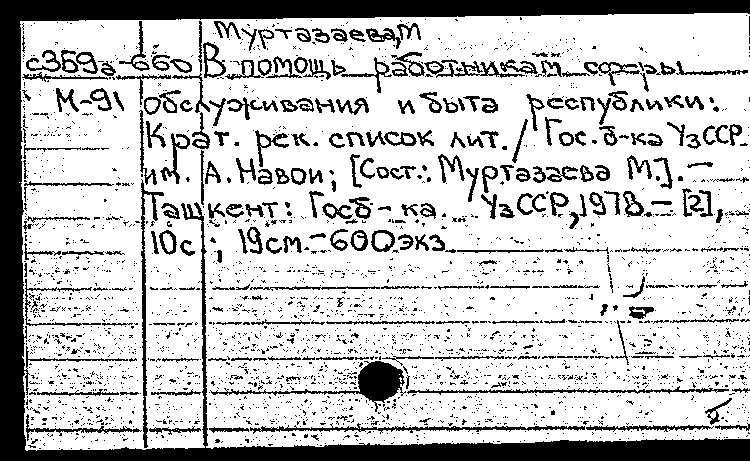 Муртазаева, М
с359а-660 В помощь работникам сферы
М-91 обслуживания и быта республики:
Крат. рек. список лит. / Гос. б-ка УзССР
им. А. Навои; [Сост.: Муртазаева М.]. —
Ташкент: Госб-ка УзССР, 1978. — [2],
10с.; 19см. — 600экз